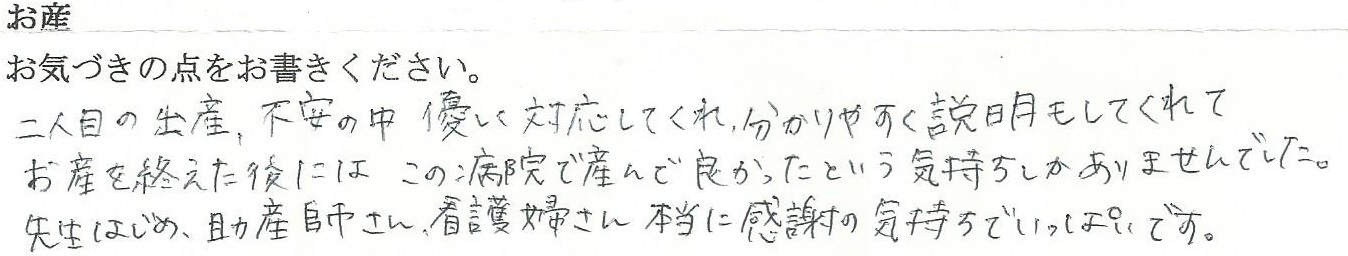 お産
お気づきの点をお書きください。
二人目の出産、不安の中 優しく対応してくれ、分かりやすく説明もしてくれて
お産を終えた後には この病院で産んで良かったという気持ちしかありませんでした。
先生はじめ、助産師さん、看護婦さん 本当に感謝の気持ちでいっぱいです。